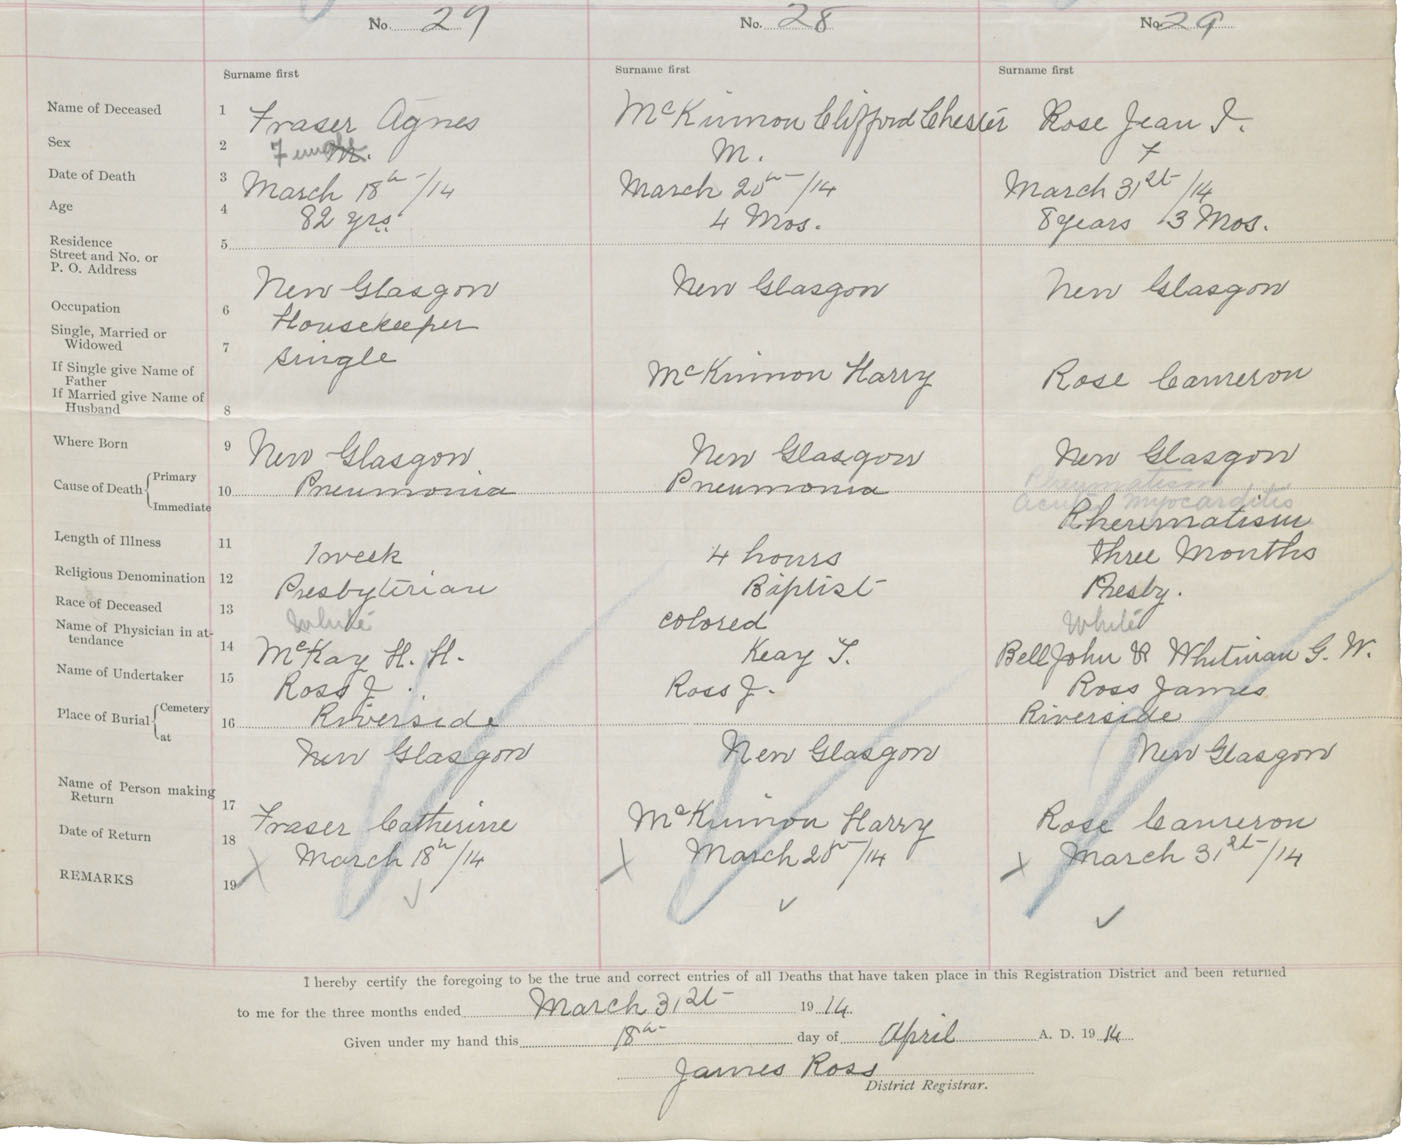 No. 29 No. 28 No. 29
Surname first Surname first Surname first
Name of Deceased 1 Fraser Agnes McKinnon Clifford Chester Rose Jean I.
Sex 2 Female M. M. F
Date of Death 3 March 18th/14 March 20th/14 March 31st/14
Age 4 82 yrs. 4 Mos. 8 years 3 Mos.
Residence
Street and No. or
P. O. Address 5 New Glasgow New Glasgow New Glasgow
Occupation 6 Housekeeper
Single, Married or
Widowed 7 single
If Single give Name of
Father McKinnon Harry Rose Cameron
If Married give Name of
Husband 8
Where Born 9 New Glasgow New Glasgow New Glasgow
Cause of Death Primary 10 Pneumonia Pneumonia Rheumatism
Immediate Acute Myocarditis
Rheumatism
Length of Illness 11 1 week 4 hours three Months
Religious Denomination 12 Presbyterian Baptist Presby.
Race of Deceased 13 White colored White
Name of Physician in at-
tendance 14 McKay H. H. Keay T. Bell John & Whitman G. W.
Name of Undertaker 15 Ross J. Ross J. Ross James
Place of Burial Cemetery 16 Riverside Riverside
at New Glasgow New Glasgow New Glasgow
Name of Person making
Return 17 Fraser Catherine McKinnon Harry Rose Cameron
Date of Return 18 March 18th/14 March 20th/14 March 31st/14
REMARKS 19
I hereby certify the foregoing to be the true and correct entries of all Deaths that have taken place in this Registration District and been returned
to me for the three months ended March 31st 1914
Given under my hand this 18th day of April A. D. 1914
James Ross
District Registrar.